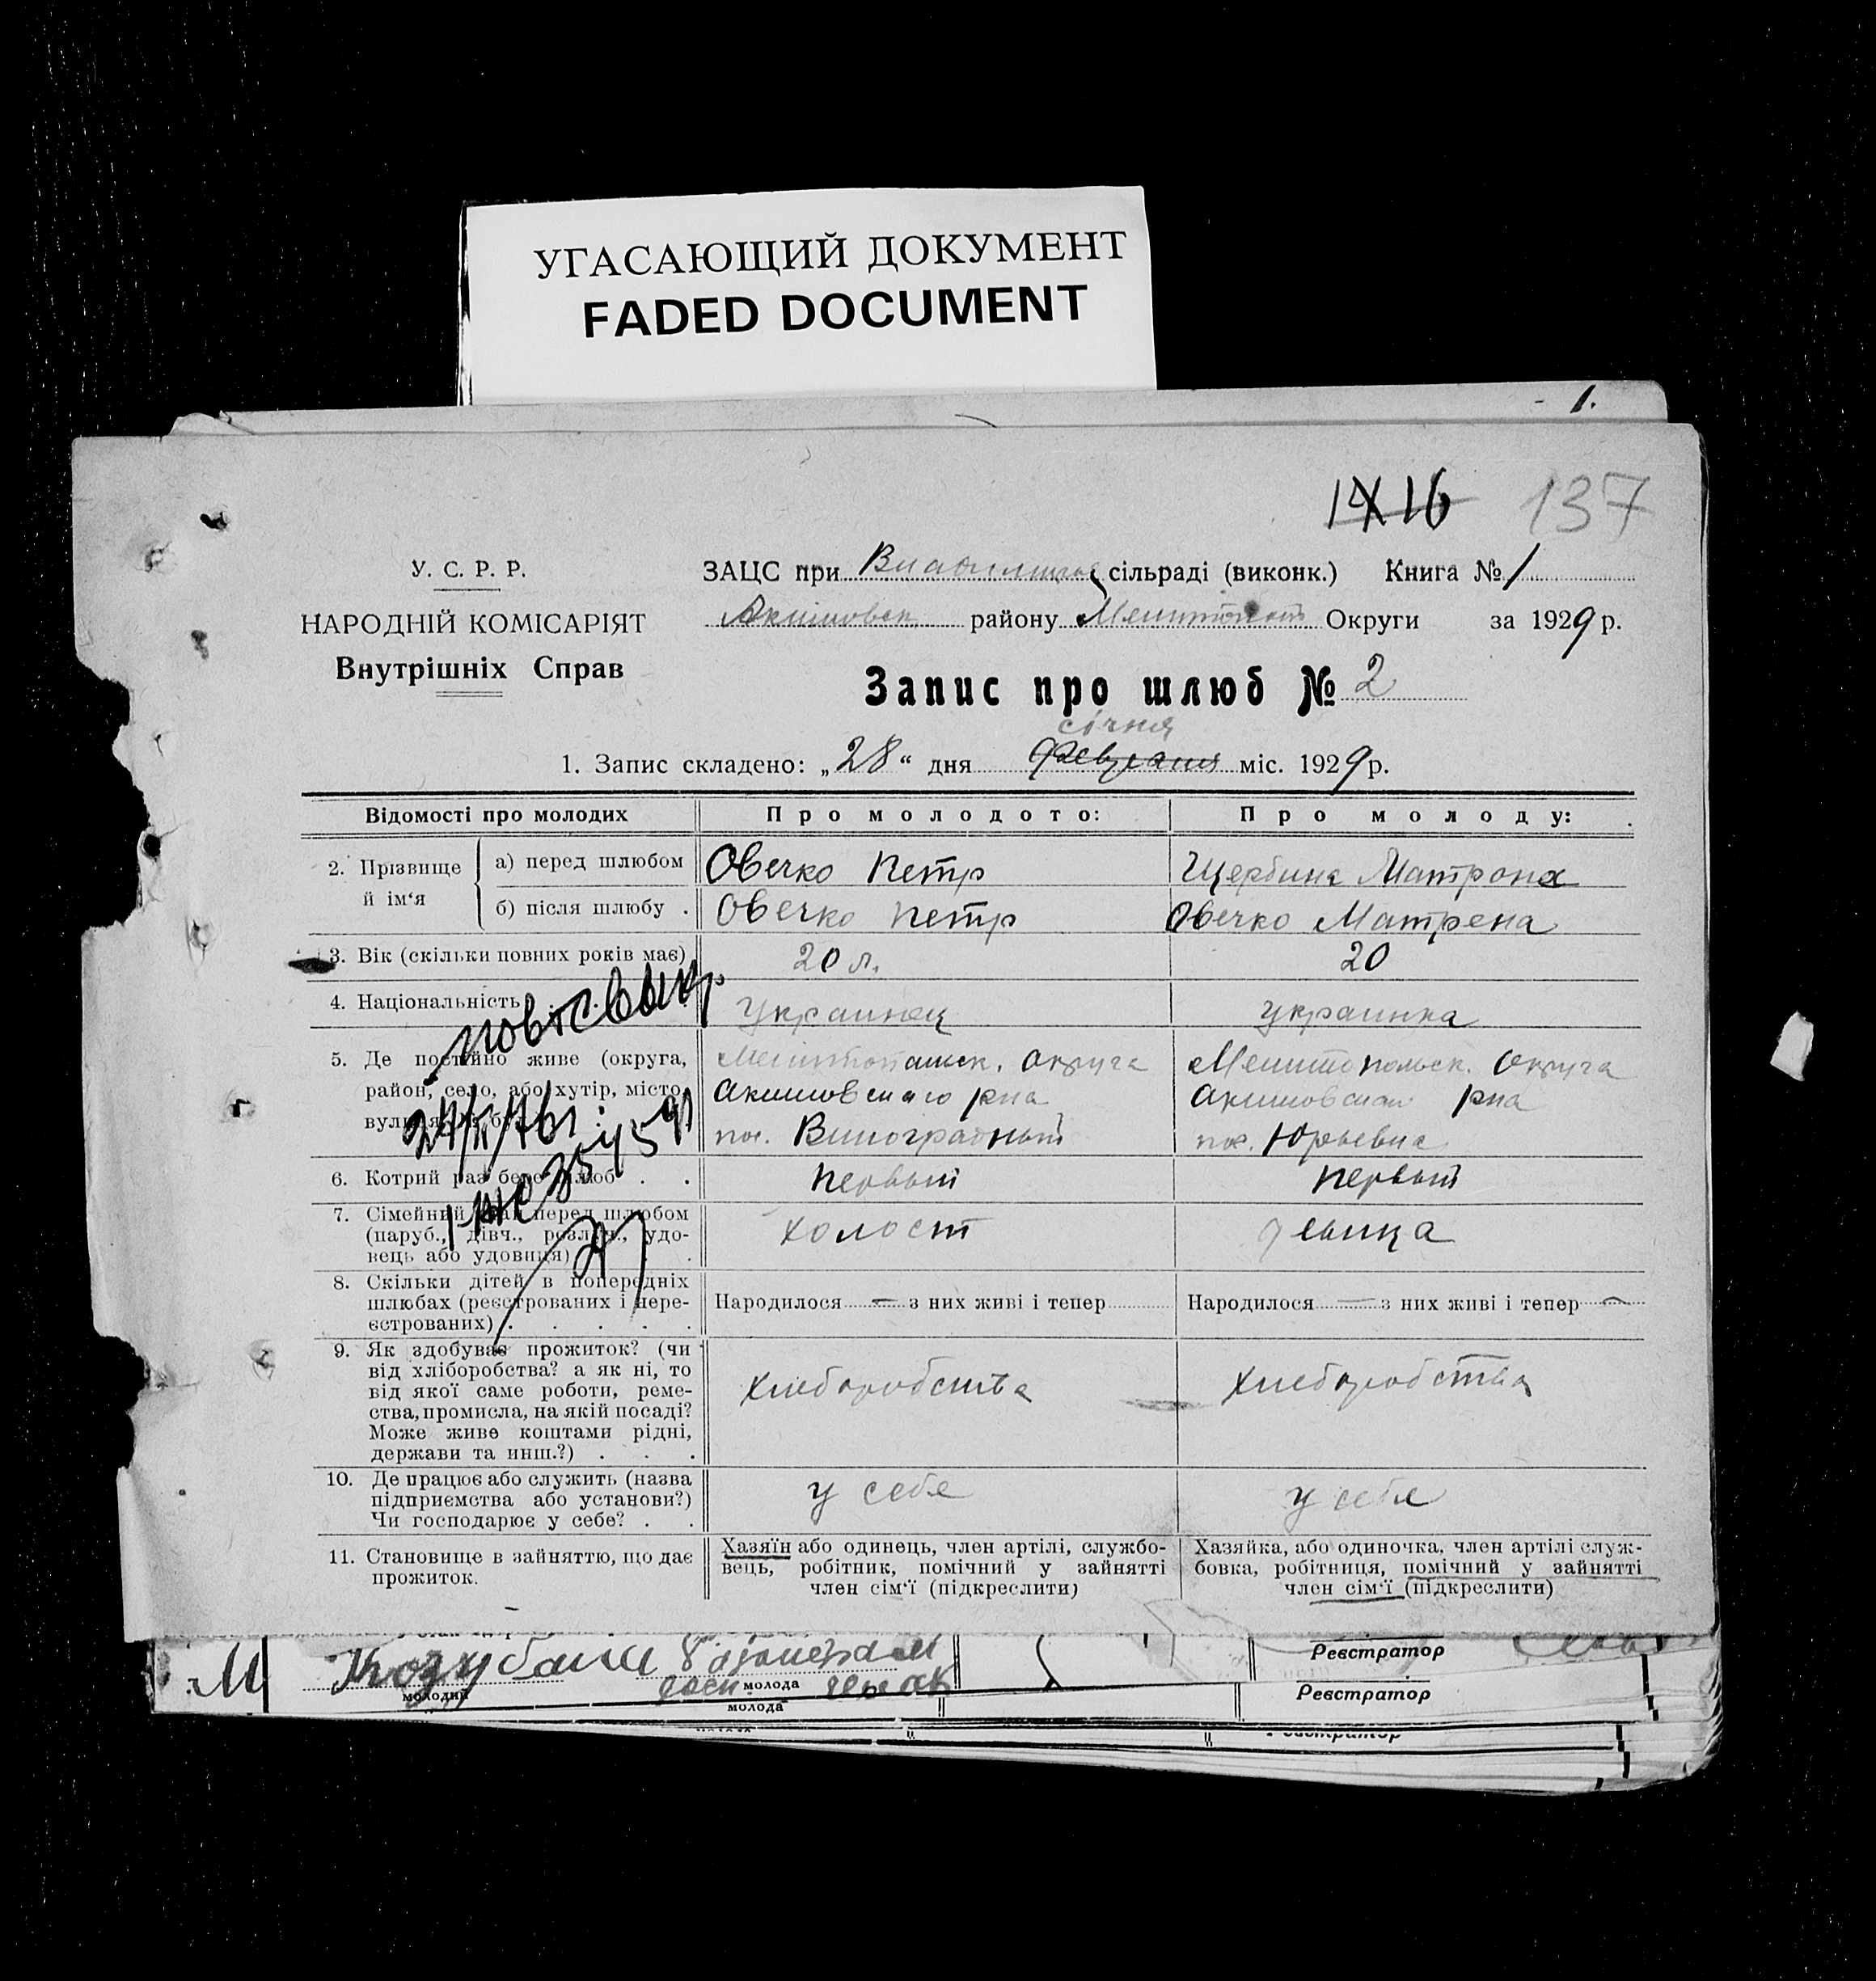 УГАСАЮЩИЙ ДОКУМЕНТ
FADED DOCUMENT
1.
137
У. С. Р. Р.
НАРОДНІЙ КОМІСАРІЯТ
Внутрішніх Справ
ЗАЦС при сільраді (виконк.) Книга № 1
Акимовск району Мелитопольс Округи за 1929 р.
Запис про шлюб № 2
січня
1. Запис складено: „28“ дня февраля міс. 1929 р.
Відомості про молодих
Про молодого:
Про молоду:
2. Прізвище й ім'я
а) перед шлюбом
Овечко Петр
Щербина Матрона
б) після шлюбу .
Овечко Петр
Овечко Матрена
3. Вік (скільки повних років має)
20 л.
20
4. Національність . . .
Украинец
украинка
5. Де постійно живе (округа,
район, село, або хутір, місто,
Мелитопольск. округа
Акимовского рна
пос. Виноградный
Мелитопольск. округа
Акимовского рна
пос. Юрьевка
6. Котрий раз бере шлюб . .
первый
первый
7. Сімейний стан перед шлюбом
(паруб., дівч., розлуч., удо-
вець або удовиця) .
холост
девица
8. Скільки дітей в попередніх
шлюбах (реєстрованих і нере-
єстрованих) . . . . .
Народилося — з них живі і тепер
Народилося — з них живі і тепер —
9. Як здобуває прожиток? (чи
від хліборобства? а як ні, то
від якої саме роботи, реме-
ства, промисла, на якій посаді?
Може живе коштами рідні,
держави та инш.?) . . .
хлеборобства
хлеборобства
10. Де працює або служить (назва
підприємства або установи?)
Чи господарює у себе? . .
у себе
у себе
11. Становище в зайняттю, що дає
прожиток.
Хазяїн або одинець, член артілі, службо-
вець, робітник, помічний у зайнятті
член сім'ї (підкреслити)
Хазяйка, або одиночка, член артілі служ-
бовка, робітниця, помічний у зайнятті
член сім'ї (підкреслити)
молодий
молода
Реєстратор
молода
Реєстратор